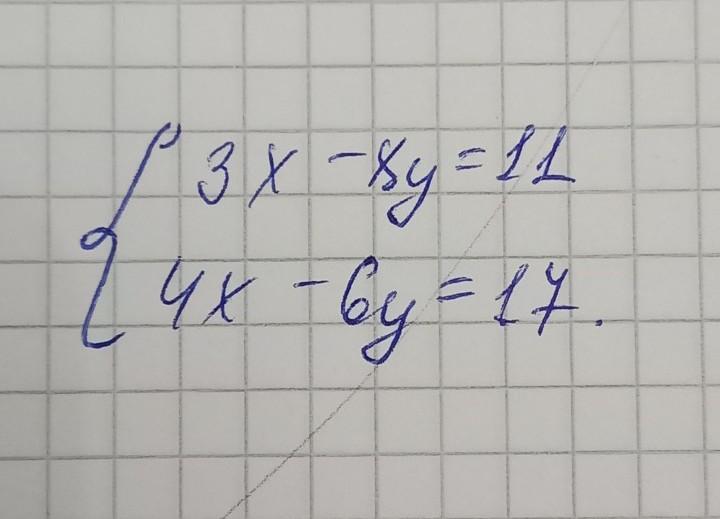 3x - 8y = 11
4x - 6y = 17.